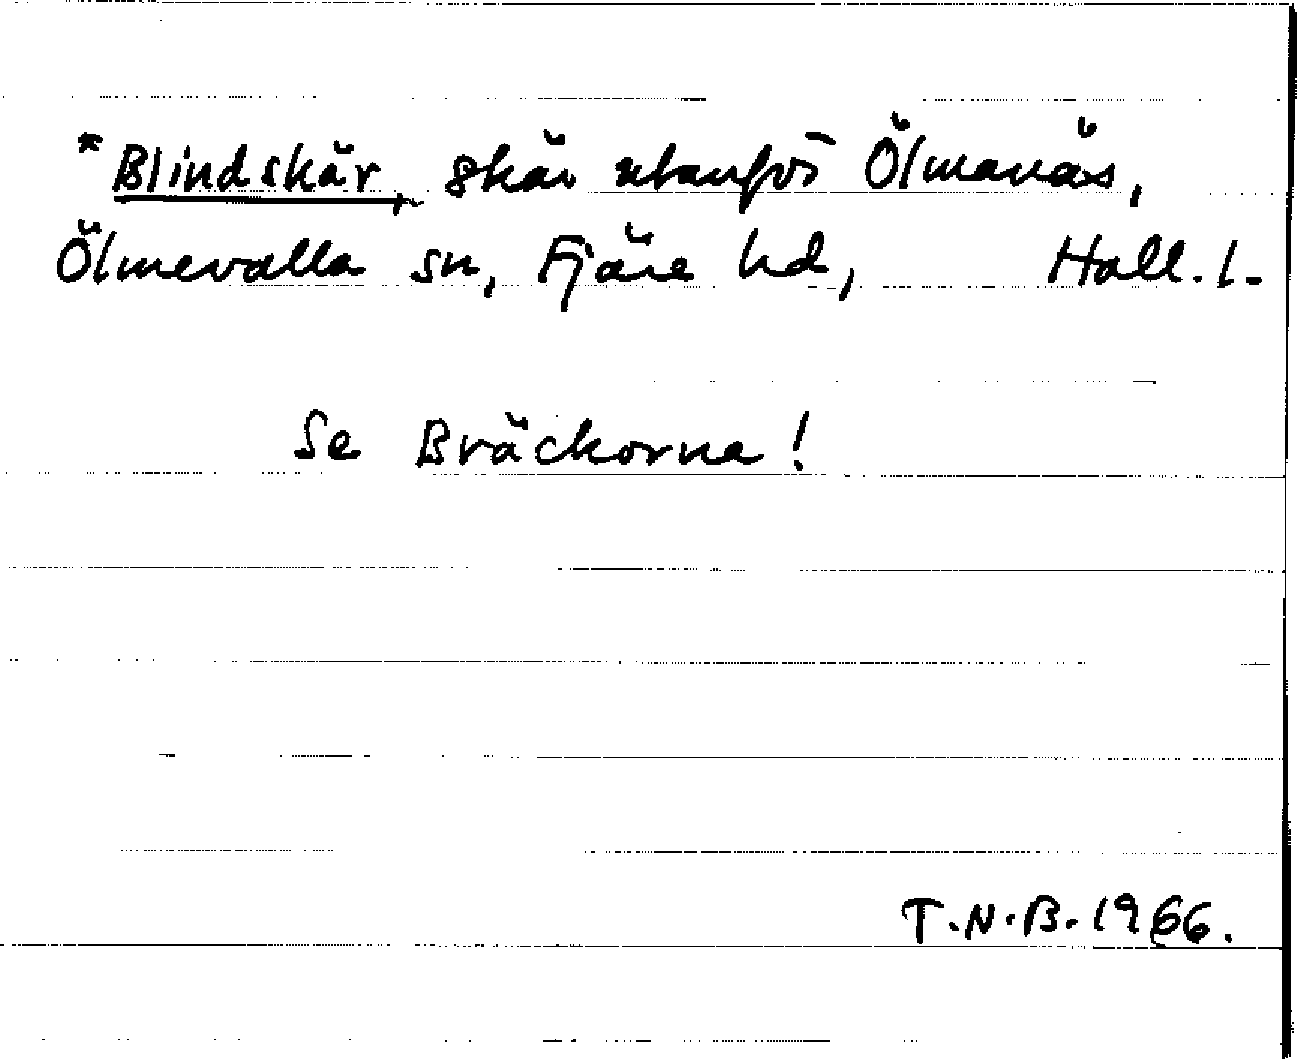 *Blindskär, skär utanför Ölmanäs,
Ölmevalla sn, Fjäre hd, Hall. l.
Se Bräckorna!
T.N.B. 1966.